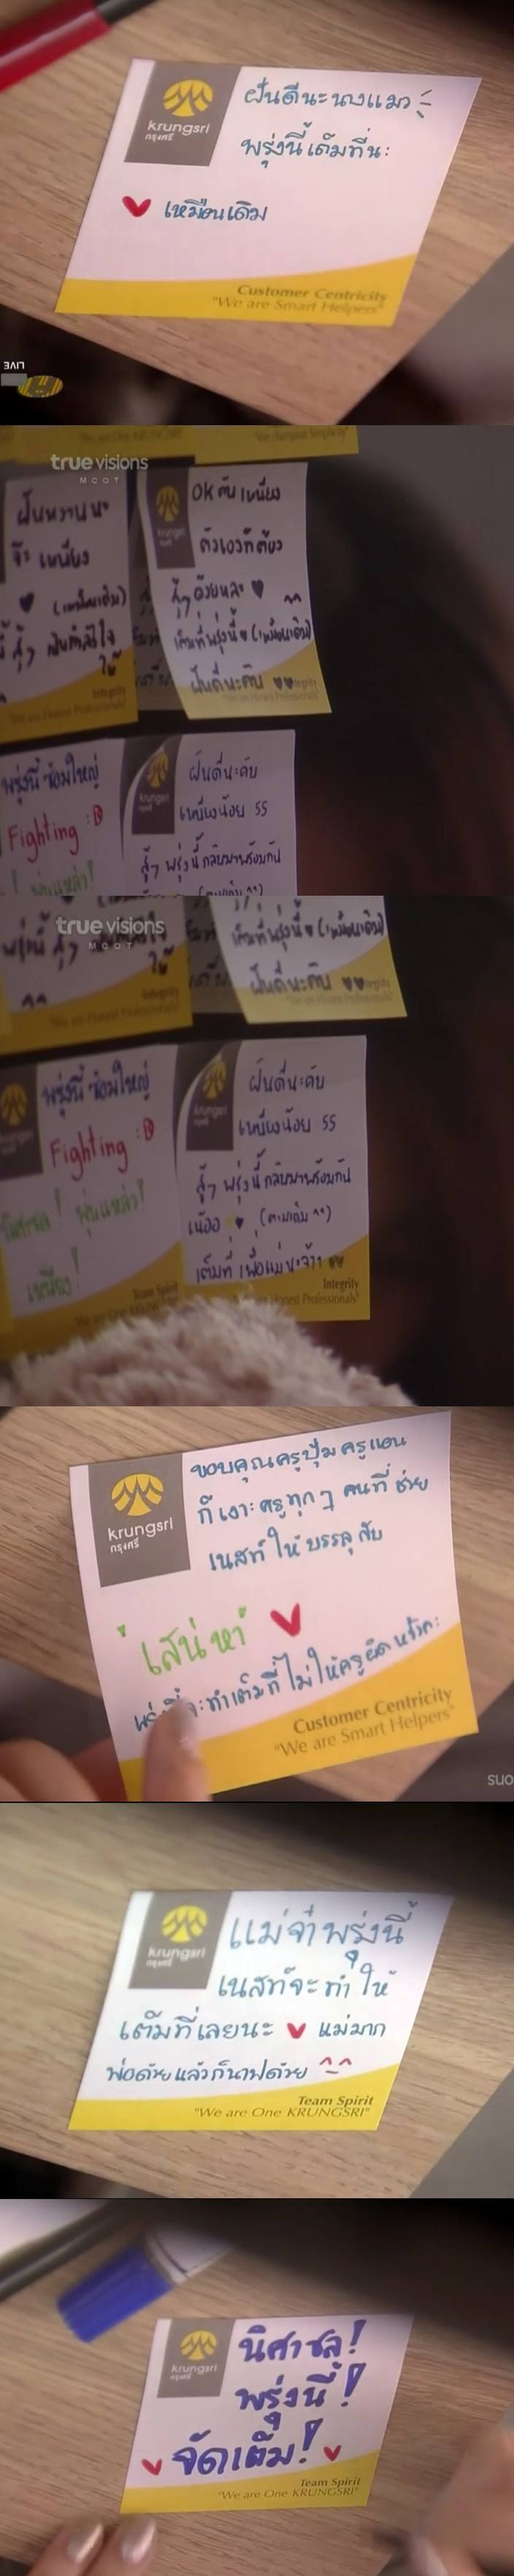 krungsri
กรุงศรี
ฝันดีนะนางแมว
พรุ่งนี้เต็มที่นะ
เหมือนเดิม
Customer Centricity
"We are Smart Helpers"
LIVE
true visions
MCOT
ฝันหวานนะ
จ๊ะ เหนี่ยง
(เหมือนเดิม)
สู้ๆ เป็นกำลังใจ
Integrity
"We are Honest Professionals"
OK คับ เหนี่ยง
ตัวเองก็ต้อง
สู้ๆ ด้วยหละ
เต็มที่พรุ่งนี้ (เหมือนเดิม)
ฝันดีนะคับ
พรุ่งนี้ ซ้อมใหญ่
Fighting :D
krungsri
ฝันดีนะคับ
เหนี่ยงน้อย 55
สู้ๆ พรุ่งนี้กลับมาพร้อมกัน
(ตามเดิม ^^)
true visions
MCOT
พรุ่งนี้ สู้ๆ
^^
Integrity
"We are Honest Professionals"
เต็มที่พรุ่งนี้ (เหมือนเดิม)
ฝันดีนะคับ
พรุ่งนี้ ซ้อมใหญ่
Fighting :D
เหนี่ยง!
Team Spirit
"We are One KRUNGSRI"
krungsri
ฝันดีนะคับ
เหนี่ยงน้อย 55
สู้ๆ พรุ่งนี้กลับมาพร้อมกัน
เน้ออ (ตามเดิม ^^)
เต็มที่ เพื่อแม่นะจ้าา
Integrity
Honest Professionals"
krungsri
กรุงศรี
ขอบคุณครูปุ้ม ครูแอน
ก็เงาะ ครูทุกๆ คนที่ ช่วย
เนสท์ ให้ บรรลุ กับ
'เสน่หา'
พรุ่งนี้จะทำเต็มที่ ไม่ให้ครูผิดหวังค่ะ
Customer Centricity
"We are Smart Helpers"
krungsri
กรุงศรี
แม่จ๋าพรุ่งนี้
เนสท์จะทำ ให้
เต็มที่เลยนะ แม่มาก
พ่อด้วยแล้วก็นาฟด้วย ^^
Team Spirit
"We are One KRUNGSRI"
krungsri
กรุงศรี
นิศาชล!
พรุ่งนี้!
จัดเต็ม!
Team Spirit
"We are One KRUNGSRI"